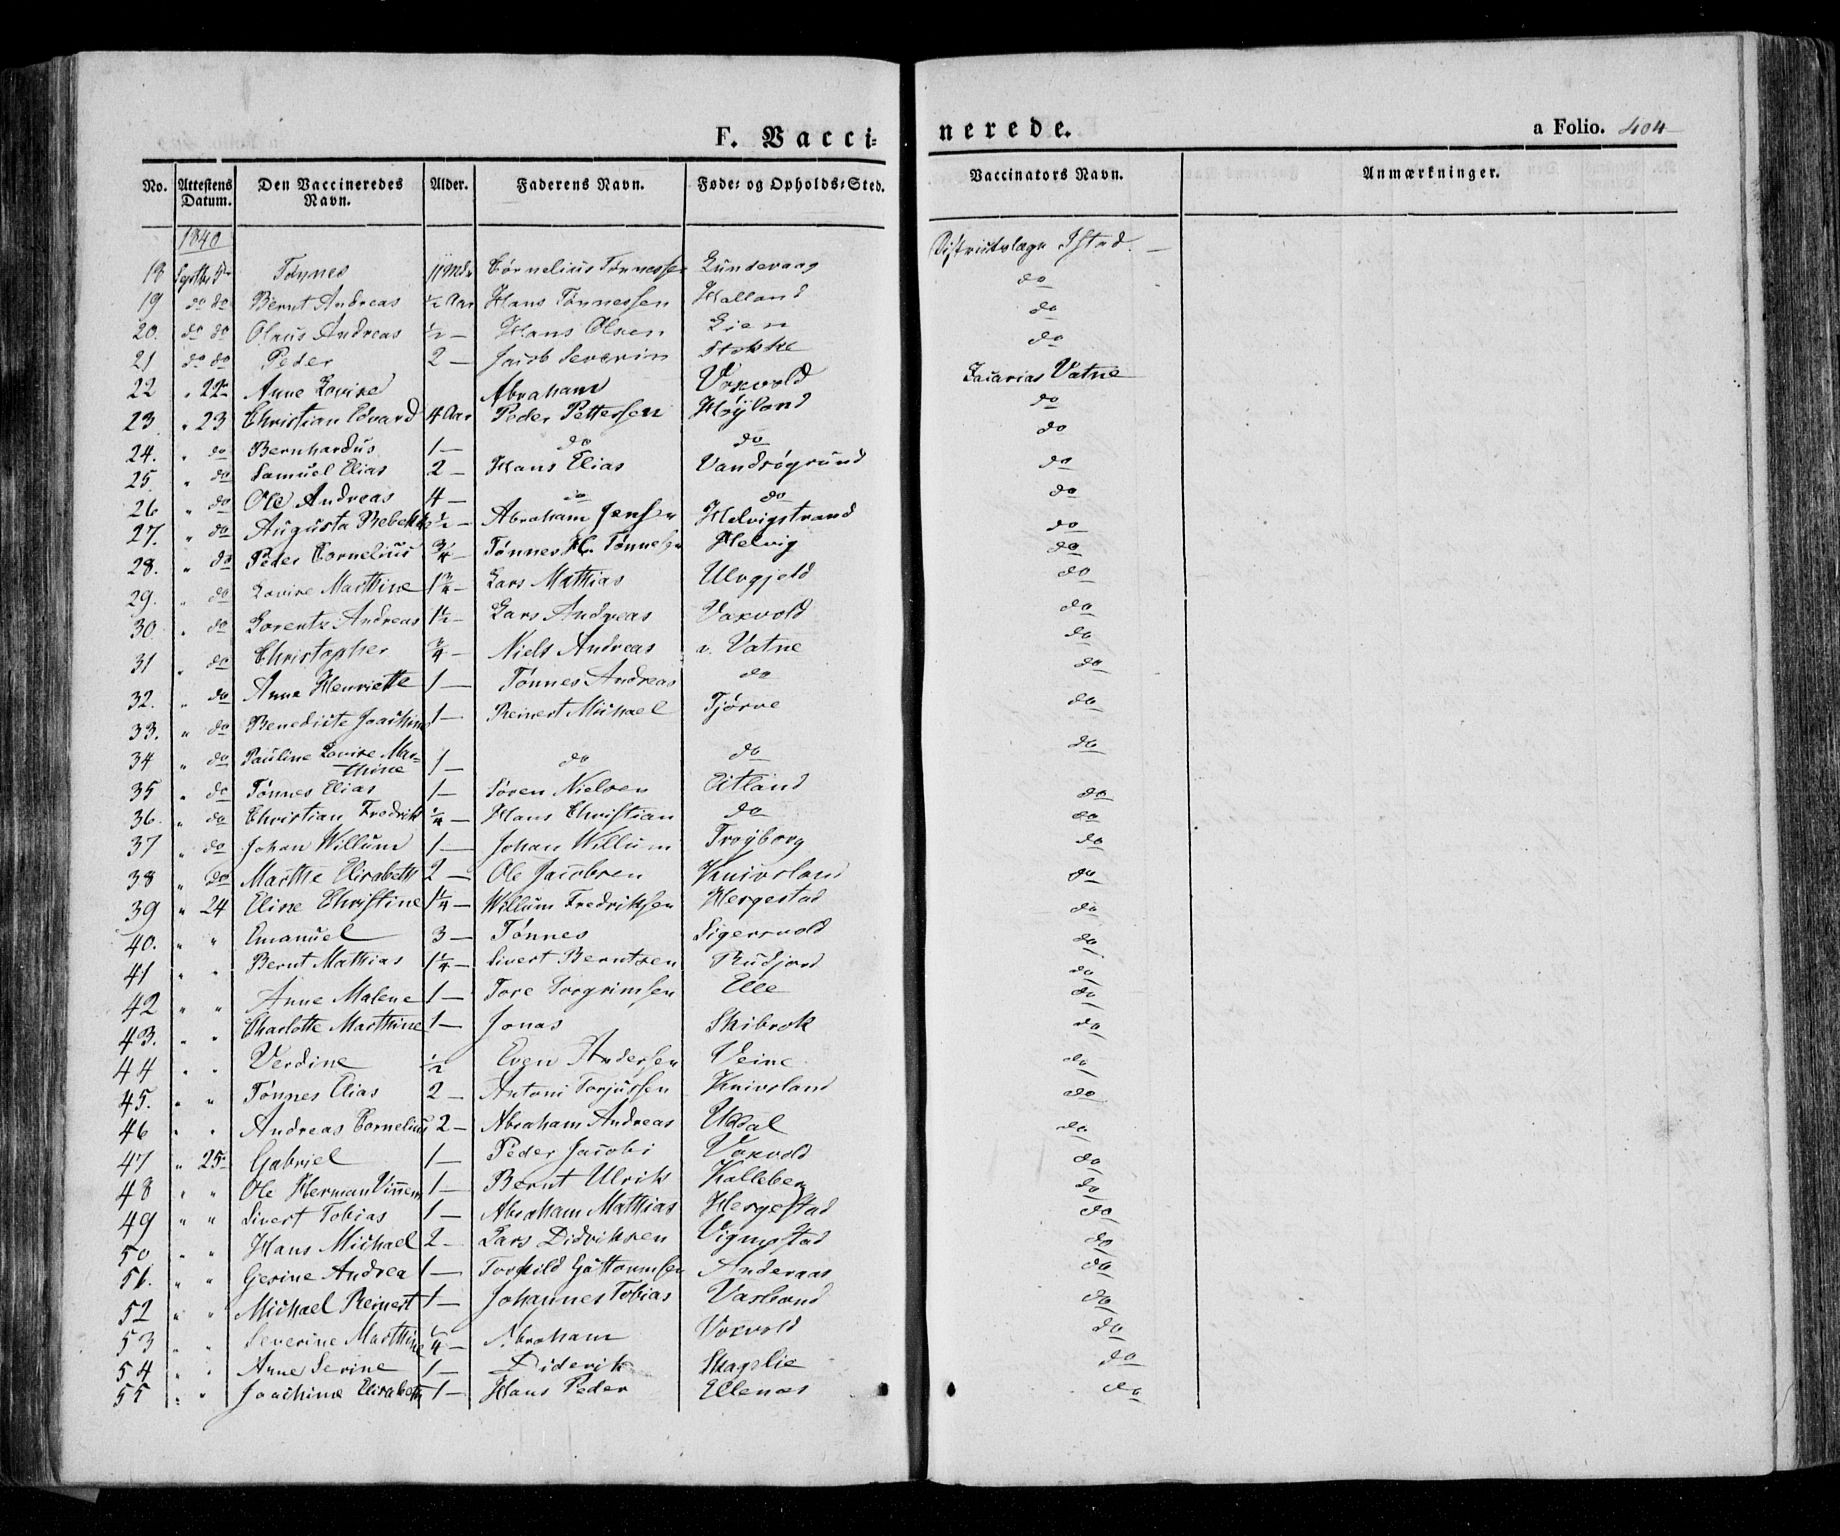 F. Vaccinerede. a Folio. 404
No. Attestens Datum. Den Vaccineredes Navn. Alder. Faderens Navn. Føde- og Opholds-Sted. Vaccinators Navn. Anmærkninger.
1840
18 Septbr 5te Tønnes 11 Mdr Cornelius Tønnessen Lundevaag Districtslæge Istad. —
19 do do Bernt Andreas ½ Aar Hans Tønnessen Halland do
20. do do Olaus Andreas ½ — Hans Olsen Lien do
21 do do Peder 2 — Jacob Severin Stokke do
22 " 22de Anne Lovise Abraham Voxvold Zacarias Vatne
23. " 23 Christian Edvard 4 Aar Peder Pettersen Høyland do
24. " do Bernhardus 1 — do do do
25 " do Samuel Elias 2 — Hans Elias Vandsøgrund do
26 " do Ole Andreas 4 — do do do
27. " do Augusta Rebekke ½ — Abraham Jensen Helvigstrand do
28. " do Peder Cornelius ¾ — Tønnes H. Tønnesen Helvig do
29. " do Lovise Marthine 1¾ — Lars Mathias Ulvgjeld do
30 " do Lorentz Andreas 1½ — Lars Andreas Voxvold do
31 " do Christopher ¾ — Niels Andreas v. Vatne do
32. " do Anne Henriette 1 — Tønnes Andreas do do
33. " do Benedicte Joachime 1 — Reinert Michael Tjørve do
34 " do Pauline Lovise Mar-
thine 1 — do do do
35 " do Tønnes Elias 1 — Søren Nielsen Eitland do
36. " do Christian Fredrik ¼ — Hans Christian do do
37 " do Johan Willum 1 — Johan Willum Trøyborg do
38 " do Marthe Elisabeth 2 — Ole Jacobsen Knivsland do
39 " 24 Eline Christine 1¼ — Willum Fredriksen Hergestad do
40. " " Emanuel 3 — Tønnes Sigersvold do
41 " " Bernt Mathias 1¼ — Sivert Berntsen Rudjord do
42 " " Anne Malene 1 — Tore Torgrimsen Elle do
43. " " Charlotte Marthine 1 — Jonas Skibrok do
44 " " Verdine ½ Even Andersen Veine do
45. " " Tønnes Elias 2 — Antoni Torjussen Knivsland do
46 " " Andreas Cornelius 2 — Abraham Andreas Uddal do
47 " 25 Gabriel 1 — Peder Jacobi Voxvold do
48 " " Ole Herman Vinnem 1 — Bernt Ulrik Kalleberg do
49 " " Sivert Tobias 1 — Abraham Mathias Hergestad do
50 " " Hans Michael 2 — Lars Didriksen Vigmostad do
51. " " Gesine Andrea 1 — Torkild Guttormsen Anderaas do
52 " " Michael Reinert 1 — Johannes Tobias Vasland do
53 " " Severine Marthine ¼ — Abraham Voxvold do
54 " " Anne Serine 1 — Diderik Skagslie do
55 " " Joachime Elisabeth 1 — Hans Peder Ellenes do